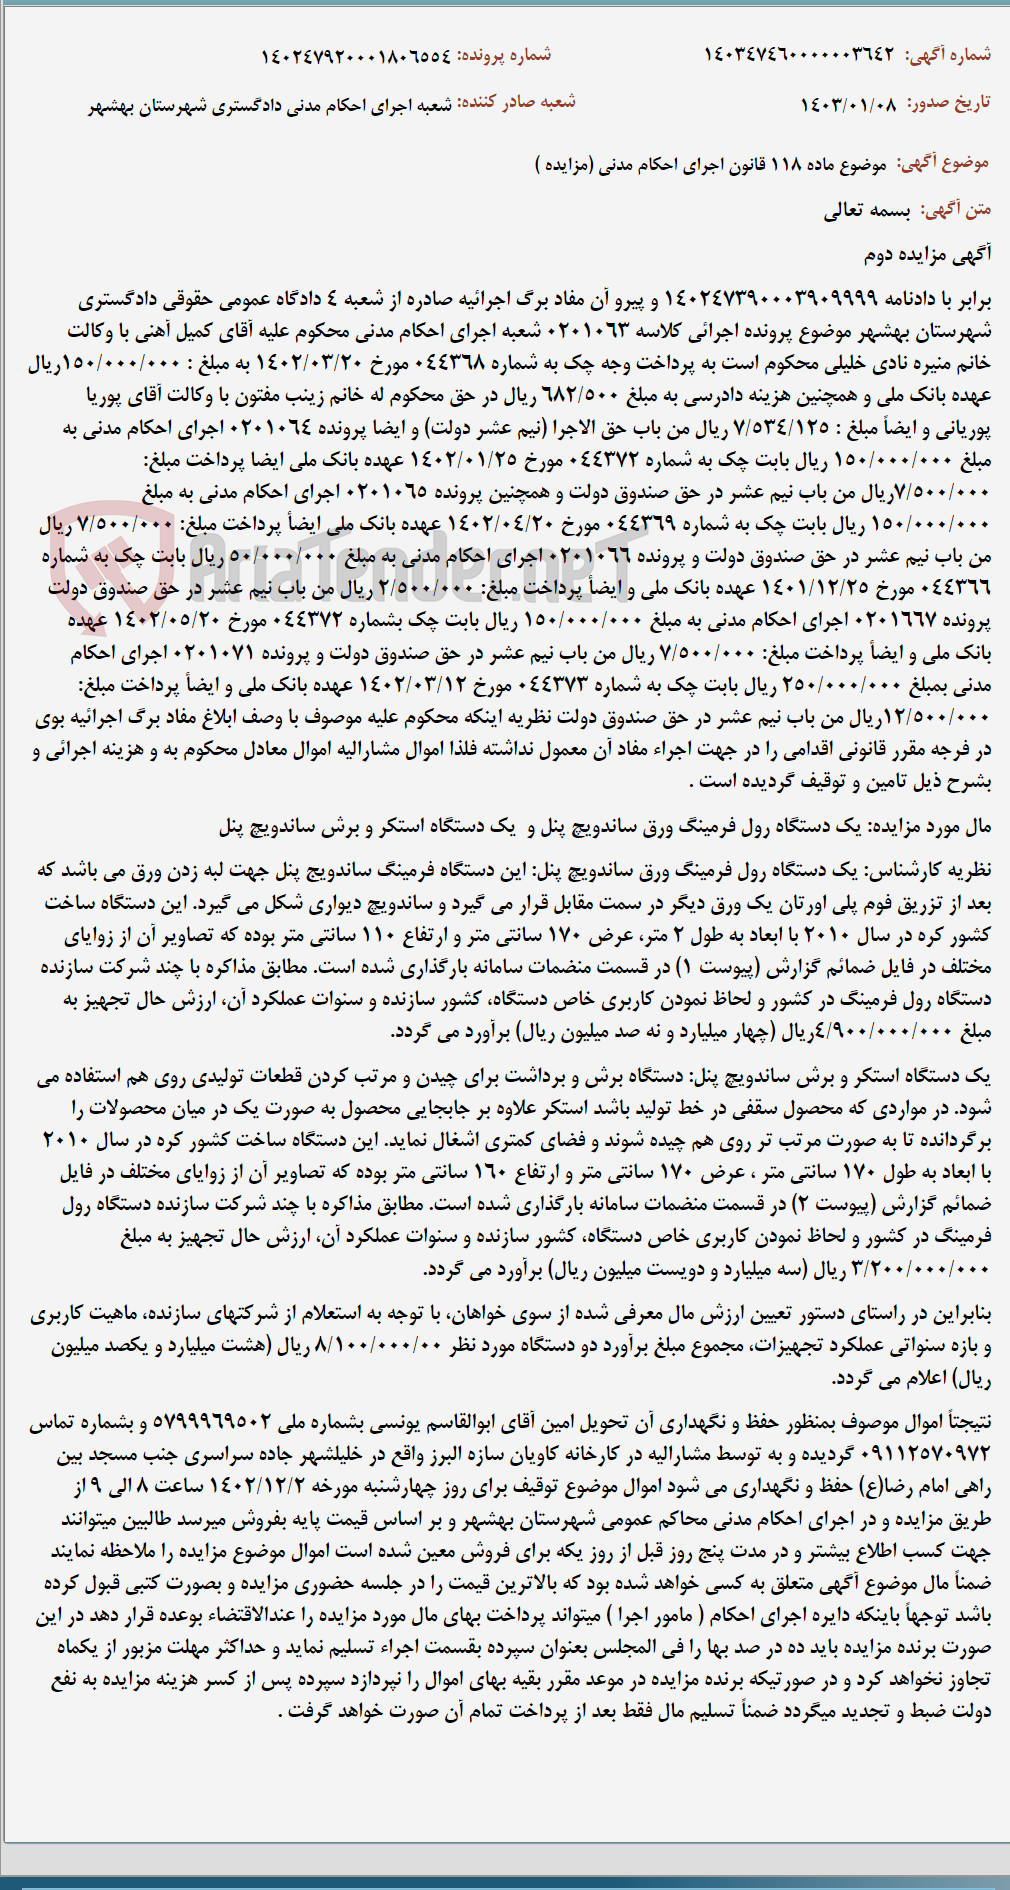 شماره آگهی: ۱۴۰۳۴۷۴۶۰۰۰۰۰۰۳۶۴۲ شماره پرونده: ۱۴۰۲۴۷۹۲۰۰۰۱۸۰۶۵۵۴
تاریخ صدور: ۱۴۰۳/۰۱/۰۸ شعبه صادر کننده: شعبه اجرای احکام مدنی دادگستری شهرستان بهشهر
موضوع آگهی: موضوع ماده ۱۱۸ قانون اجرای احکام مدنی (مزایده )
متن آگهی: بسمه تعالی
آگهی مزایده دوم
برابر با دادنامه ۱۴۰۲۴۷۳۹۰۰۰۳۹۰۹۹۹۹ و پیرو آن مفاد برگ اجرائیه صادره از شعبه ۴ دادگاه عمومی حقوقی دادگستری
شهرستان بهشهر موضوع پرونده اجرائی کلاسه ۰۲۰۱۰۶۳ شعبه اجرای احکام مدنی محکوم علیه آقای کمیل آهنی با وکالت
خانم منیره نادی خلیلی محکوم است به پرداخت وجه چک به شماره ۰۴۴۳۶۸ مورخ ۱۴۰۲/۰۳/۲۰ به مبلغ : ۱۵۰/۰۰۰/۰۰۰ریال
عهده بانک ملی و همچنین هزینه دادرسی به مبلغ ۶۸۲/۵۰۰ ریال در حق محکوم له خانم زینب مفتون با وکالت آقای پوریا
پوریانی و ایضاً مبلغ : ۷/۵۳۴/۱۲۵ ریال من باب حق الاجرا (نیم عشر دولت) و ایضا پرونده ۰۲۰۱۰۶۴ اجرای احکام مدنی به
مبلغ ۱۵۰/۰۰۰/۰۰۰ ریال بابت چک به شماره ۰۴۴۳۷۲ مورخ ۱۴۰۲/۰۱/۲۵ عهده بانک ملی ایضا پرداخت مبلغ:
۷/۵۰۰/۰۰۰ریال من باب نیم عشر در حق صندوق دولت و همچنین پرونده ۰۲۰۱۰۶۵ اجرای احکام مدنی به مبلغ
۱۵۰/۰۰۰/۰۰۰ ریال بابت چک به شماره ۰۴۴۳۶۹ مورخ ۱۴۰۲/۰۴/۲۰ عهده بانک ملی ایضأ پرداخت مبلغ: ۷/۵۰۰/۰۰۰ ریال
من باب نیم عشر در حق صندوق دولت و پرونده ۰۲۰۱۰۶۶ اجرای احکام مدنی به مبلغ ۵۰/۰۰۰/۰۰۰ ریال بابت چک به شماره
۰۴۴۳۶۶ مورخ ۱۴۰۱/۱۲/۲۵ عهده بانک ملی و ایضأ پرداخت مبلغ: ۲/۵۰۰/۰۰۰ ریال من باب نیم عشر در حق صندوق دولت
پرونده ۰۲۰۱۶۶۷ اجرای احکام مدنی به مبلغ ۱۵۰/۰۰۰/۰۰۰ ریال بابت چک بشماره ۰۴۴۳۷۲ مورخ ۱۴۰۲/۰۵/۲۰ عهده
بانک ملی و ایضأ پرداخت مبلغ: ۷/۵۰۰/۰۰۰ ریال من باب نیم عشر در حق صندوق دولت و پرونده ۰۲۰۱۰۷۱ اجرای احکام
مدنی بمبلغ ۲۵۰/۰۰۰/۰۰۰ ریال بابت چک به شماره ۰۴۴۳۷۳ مورخ ۱۴۰۲/۰۳/۱۲ عهده بانک ملی و ایضأ پرداخت مبلغ:
۱۲/۵۰۰/۰۰۰ریال من باب نیم عشر در حق صندوق دولت نظریه اینکه محکوم علیه موصوف با وصف ابلاغ مفاد برگ اجرائیه بوی
در فرجه مقرر قانونی اقدامی را در جهت اجراء مفاد آن معمول نداشته فلذا اموال مشارالیه اموال معادل محکوم به و هزینه اجرائی و
بشرح ذیل تامین و توقیف گردیده است .
مال مورد مزایده: یک دستگاه رول فرمینگ ورق ساندویچ پنل و یک دستگاه استکر و برش ساندویچ پنل
نظریه کارشناس: یک دستگاه رول فرمینگ ورق ساندویچ پنل: این دستگاه فرمینگ ساندویچ پنل جهت لبه زدن ورق می باشد که
بعد از تزریق فوم پلی اورتان یک ورق دیگر در سمت مقابل قرار می گیرد و ساندویچ دیواری شکل می گیرد. این دستگاه ساخت
کشور کره در سال ۲۰۱۰ با ابعاد به طول ۲ متر، عرض ۱۷۰ سانتی متر و ارتفاع ۱۱۰ سانتی متر بوده که تصاویر آن از زوایای
مختلف در فایل ضمائم گزارش (پیوست ۱) در قسمت منضمات سامانه بارگذاری شده است. مطابق مذاکره با چند شرکت سازنده
دستگاه رول فرمینگ در کشور و لحاظ نمودن کاربری خاص دستگاه، کشور سازنده و سنوات عملکرد آن، ارزش حال تجهیز به
مبلغ ۴/۹۰۰/۰۰۰/۰۰۰ریال (چهار میلیارد و نه صد میلیون ریال) برآورد می گردد.
یک دستگاه استکر و برش ساندویچ پنل: دستگاه برش و برداشت برای چیدن و مرتب کردن قطعات تولیدی روی هم استفاده می
شود. در مواردی که محصول سقفی در خط تولید باشد استکر علاوه بر جابجایی محصول به صورت یک در میان محصولات را
برگردانده تا به صورت مرتب تر روی هم چیده شوند و فضای کمتری اشغال نماید. این دستگاه ساخت کشور کره در سال ۲۰۱۰
با ابعاد به طول ۱۷۰ سانتی متر ، عرض ۱۷۰ سانتی متر و ارتفاع ۱۶۰ سانتی متر بوده که تصاویر آن از زوایای مختلف در فایل
ضمائم گزارش (پیوست ۲) در قسمت منضمات سامانه بارگذاری شده است. مطابق مذاکره با چند شرکت سازنده دستگاه رول
فرمینگ در کشور و لحاظ نمودن کاربری خاص دستگاه، کشور سازنده و سنوات عملکرد آن، ارزش حال تجهیز به مبلغ
۳/۲۰۰/۰۰۰/۰۰۰ ریال (سه میلیارد و دویست میلیون ریال) برآورد می گردد.
بنابراین در راستای دستور تعیین ارزش مال معرفی شده از سوی خواهان، با توجه به استعلام از شرکتهای سازنده، ماهیت کاربری
و بازه سنواتی عملکرد تجهیزات، مجموع مبلغ برآورد دو دستگاه مورد نظر ۸/۱۰۰/۰۰۰/۰۰ ریال (هشت میلیارد و یکصد میلیون
ریال) اعلام می گردد.
نتیجتاً اموال موصوف بمنظور حفظ و نگهداری آن تحویل امین آقای ابوالقاسم یونسی بشماره ملی ۵۷۹۹۹۶۹۵۰۲ و بشماره تماس
۰۹۱۱۲۵۷۰۹۷۲ گردیده و به توسط مشارالیه در کارخانه کاویان سازه البرز واقع در خلیلشهر جاده سراسری جنب مسجد بین
راهی امام رضا(ع) حفظ و نگهداری می شود اموال موضوع توقیف برای روز چهارشنبه مورخه ۱۴۰۲/۱۲/۲ ساعت ۸ الی ۹ از
طریق مزایده و در اجرای احکام مدنی محاکم عمومی شهرستان بهشهر و بر اساس قیمت پایه بفروش میرسد طالبین میتوانند
جهت کسب اطلاع بیشتر و در مدت پنج روز قبل از روز یکه برای فروش معین شده است اموال موضوع مزایده را ملاحظه نمایند
ضمناً مال موضوع آگهی متعلق به کسی خواهد شده بود که بالاترین قیمت را در جلسه حضوری مزایده و بصورت کتبی قبول کرده
باشد توجهاً باینکه دایره اجرای احکام ( مامور اجرا ) میتواند پرداخت بهای مال مورد مزایده را عندالاقتضاء بوعده قرار دهد در این
صورت برنده مزایده باید ده در صد بها را فی المجلس بعنوان سپرده بقسمت اجراء تسلیم نماید و حداکثر مهلت مزبور از یکماه
تجاوز نخواهد کرد و در صورتیکه برنده مزایده در موعد مقرر بقیه بهای اموال را نپردازد سپرده پس از کسر هزینه مزایده به نفع
دولت ضبط و تجدید میگردد ضمناً تسلیم مال فقط بعد از پرداخت تمام آن صورت خواهد گرفت .
AriaTender.neT